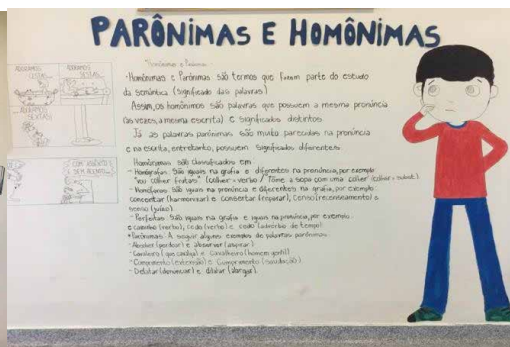 PARÔNIMAS E HOMÔNIMAS
Homônimas e Parônimas
• Homônimas e Parônimas são termos que fazem parte do estudo
da semântica (significado das palavras)
Assim, os homônimos são palavras que possuem a mesma pronúncia
(às vezes, a mesma escrita) e significados distintos.
Já as palavras parônimas são muito parecidas na pronúncia
e na escrita, entretanto, possuem significados diferentes.
Homônimas são classificadas em
- Homógrafas: São iguais na grafia e diferentes na pronúncia, por exemplo
"vou colher frutas" (colher = verbo / Tome a sopa com uma colher (colher = subst.)
- Homófonas são iguais na pronúncia e diferentes na grafia, por exemplo:
concertar (harmonizar) e consertar (reparar); censo (recenseamento) e
senso (juízo).
- Perfeitas são iguais na grafia e iguais na pronúncia, por exemplo:
e caminho (verbo); cedo (verbo) e cedo (advérbio de tempo)
• Parônimas: A seguir alguns exemplos de palavras parônimas
- Absolver (perdoar) e absorver (aspirar)
- Cavaleiro (que cavalga) e Cavalheiro (homem gentil)
- Comprimento (extensão) e Cumprimento (saudação)
- Delatar (denunciar) e dilatar (alargar).
ADORAMOS
CESTAS
ADORAMOS
SESTAS
ADORAMOS
COM ASSENTO E
SEM ACENTO